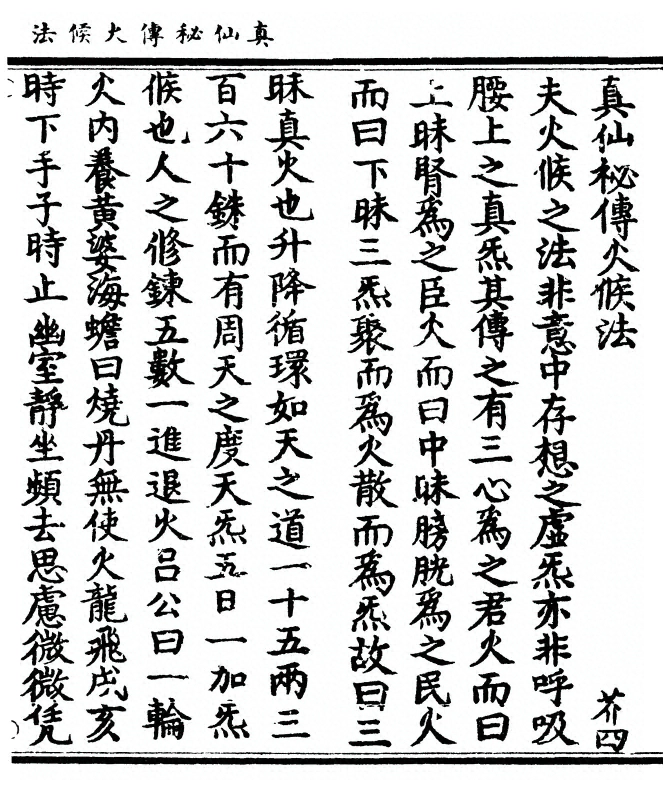 真仙秘傳火候法
真仙秘傳火候法 芥四
夫火候之法非意中存想之虛炁亦非呼吸
腰上之真炁其傳之有三心爲之君火而曰
上昧腎爲之臣火而曰中昧膀胱爲之民火
而曰下昧三炁聚而爲火散而爲炁故曰三
昧真火也升降循環如天之道一十五兩三
百六十銖而有周天之度天炁五日一加炁
候也人之修鍊五數一進退火吕公曰一輪
火內養黃婆海蟾曰燒丹無使火龍飛戌亥
時下手子時止幽室靜坐頻去思慮微微凭